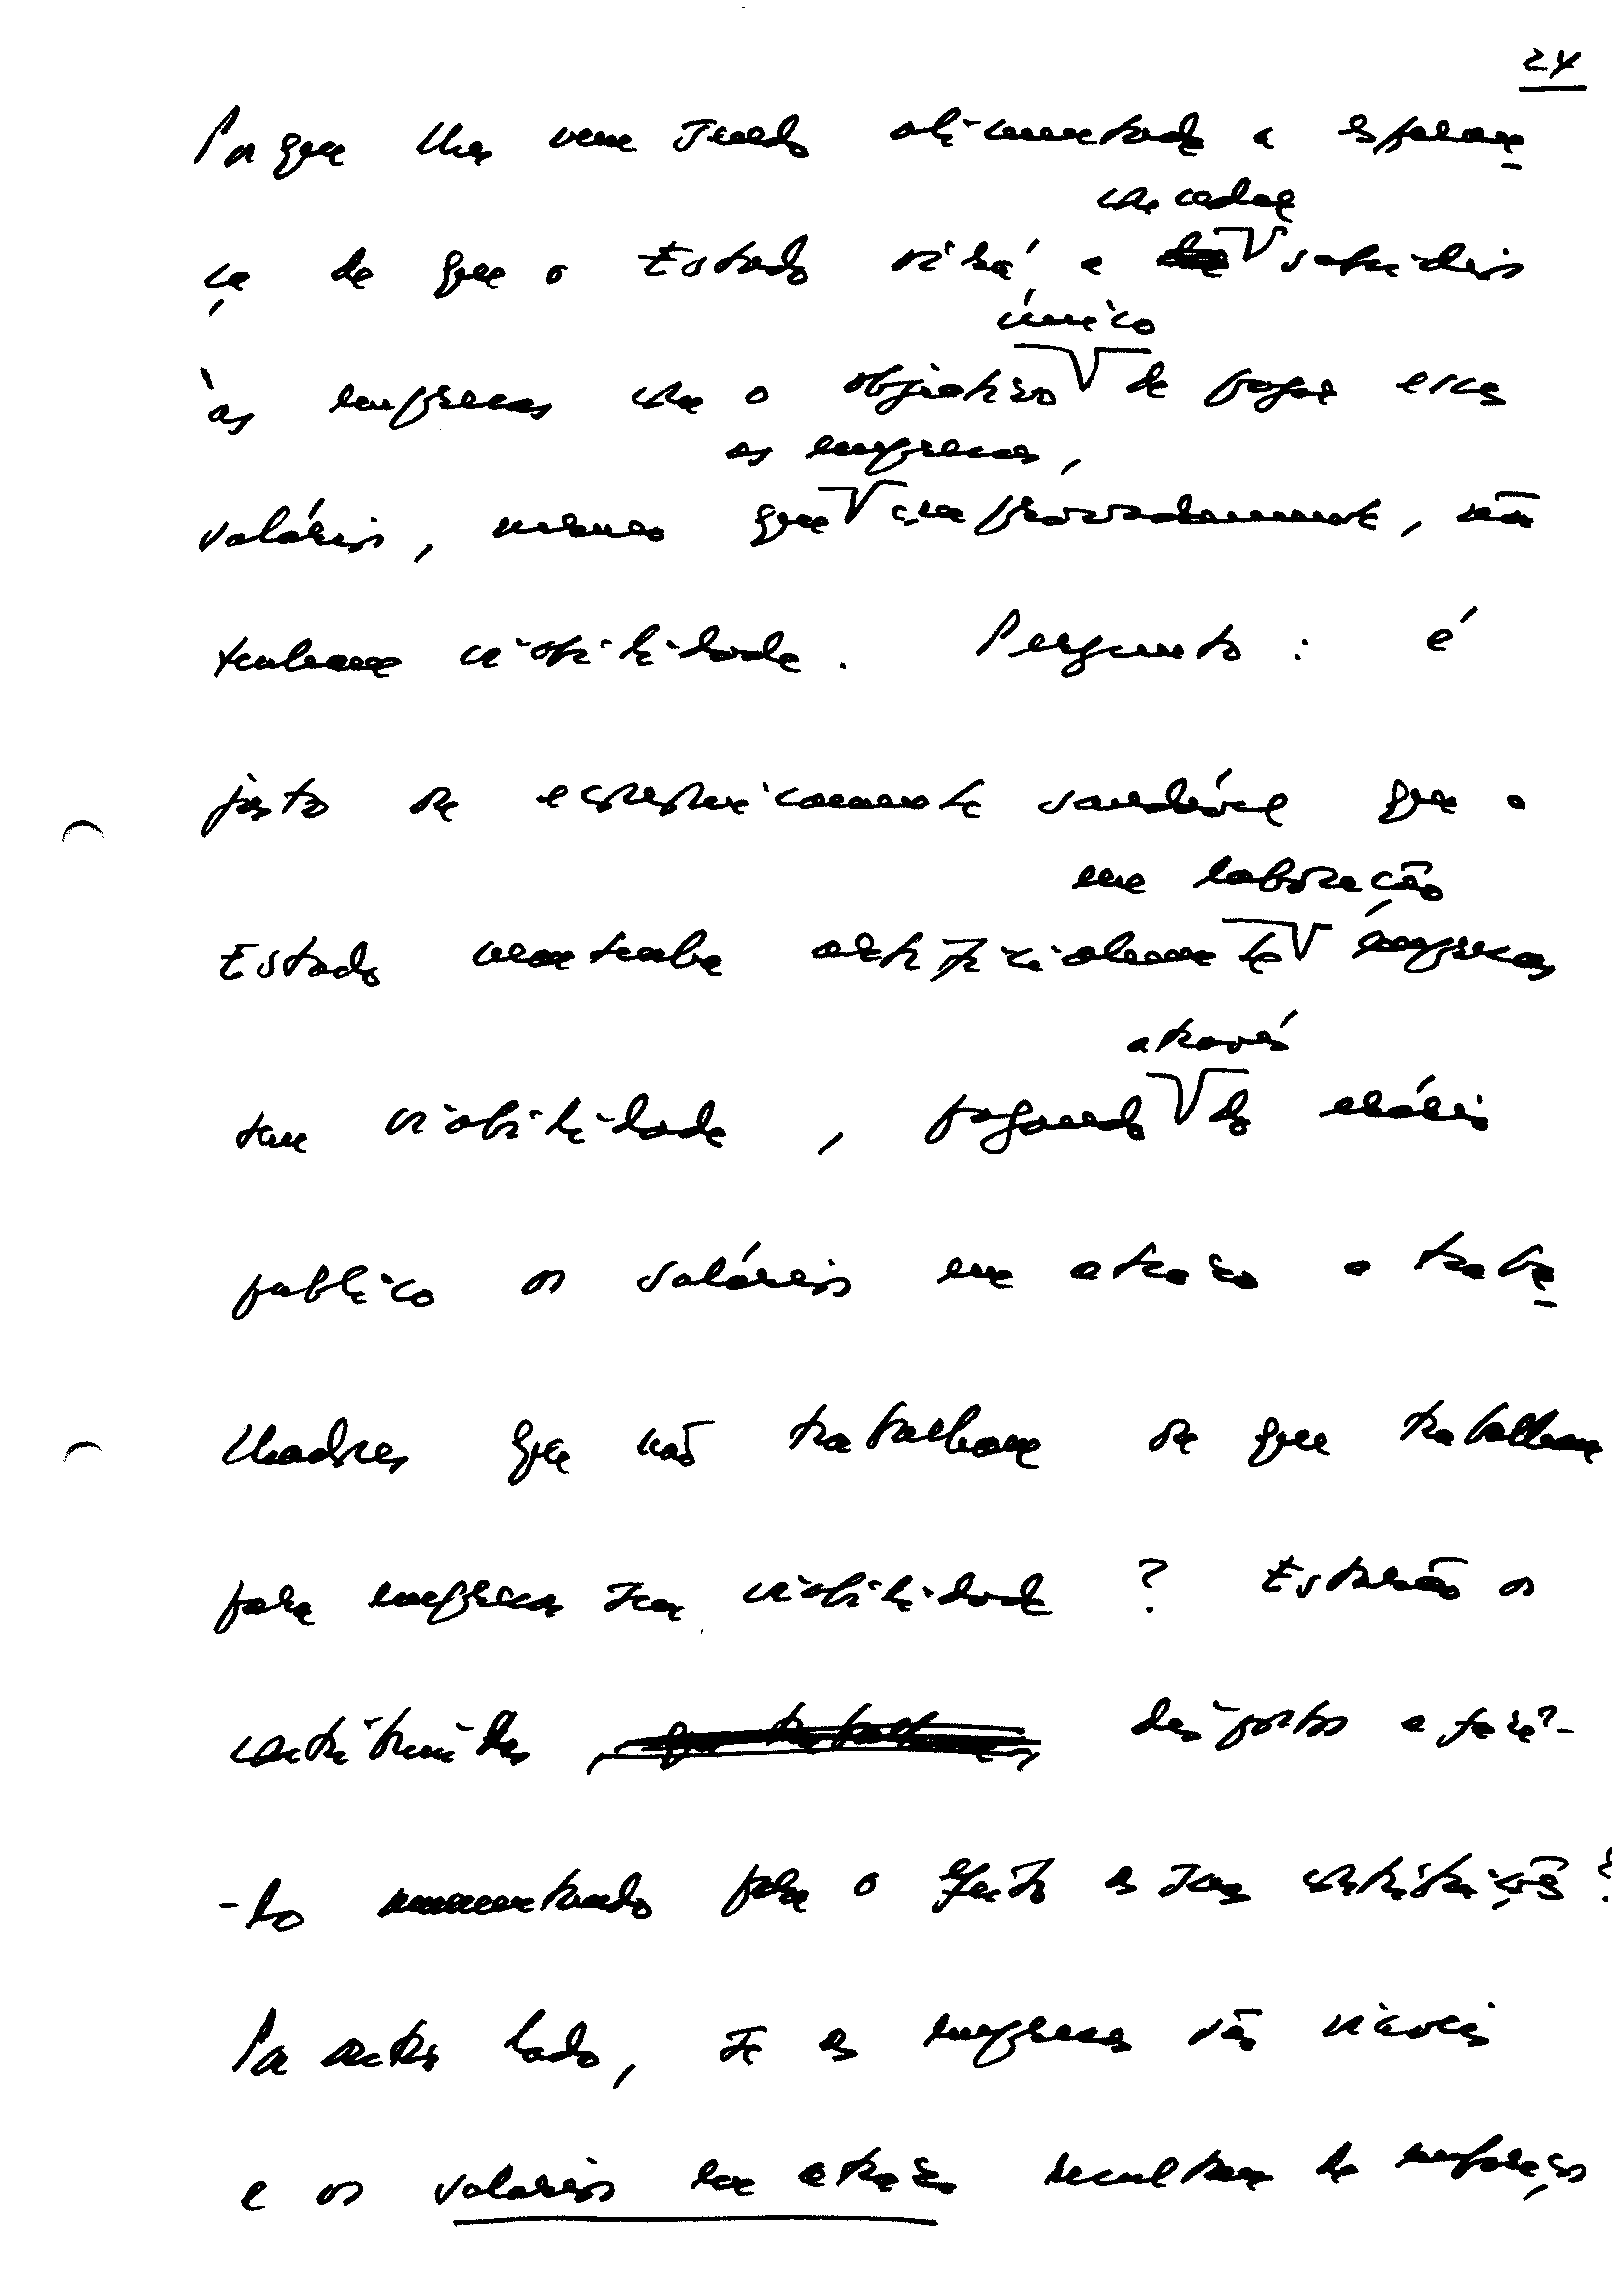 24
Porque lhes vem sendo alimentada a esperan-
conceder
ça de que o Estado virá a subsídios
único
às empresas com o objectivo de pagar esses
as empresas,
salários, mesmo que comprovadamente, não
tenham viabilidade. Pergunto: é
justo ou economicamente saudável que o
em laboração
Estado mantenha artificialmente empresas
através
sem viabilidade, pagando do erário
publico os salários em atraso a traba-
lhadores que não trabalham ou que trabalham
para empresas sem viabilidade? Estarão os
contribuintes dispostos a fazê-
-lo aumentando para o efeito as suas contribuições?
Por outro lado, se as empresas são viáveis
e os salários em atraso resultam de